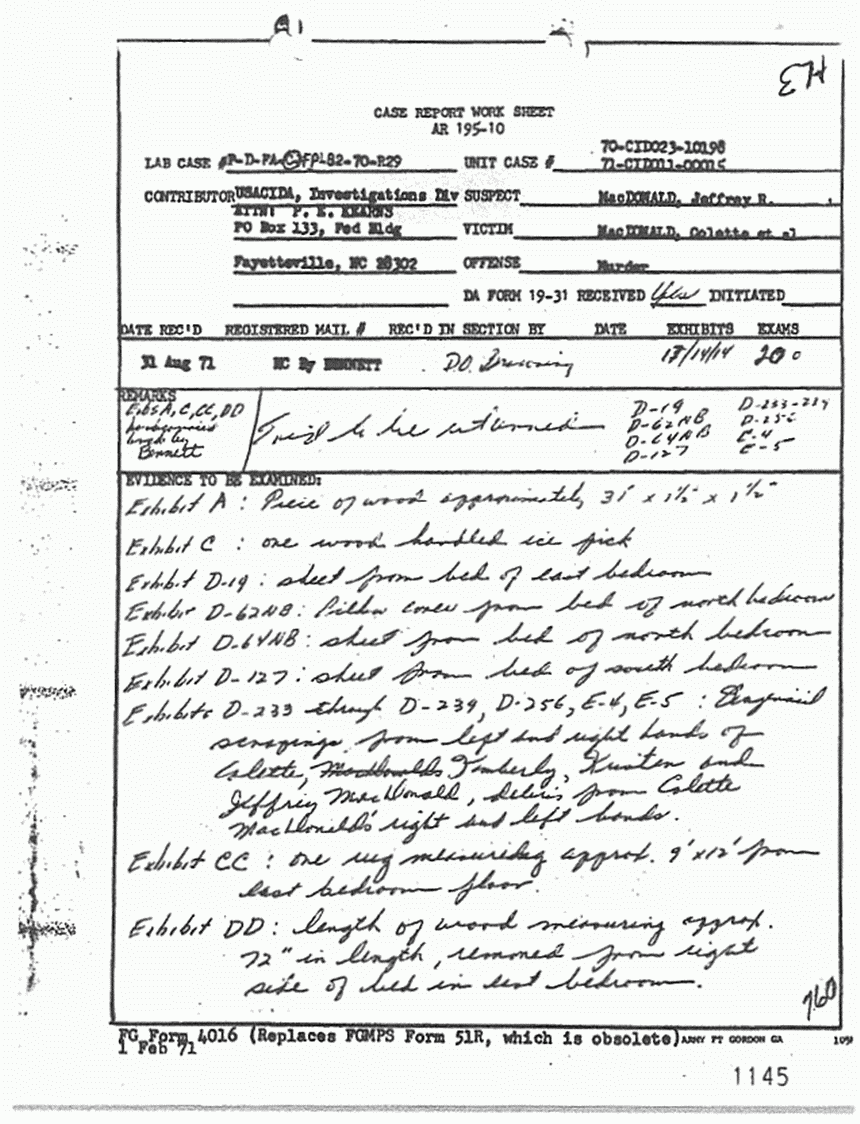 H3
CASE REPORT WORK SHEET
AR 195-10
70-CID023-10198
LAB CASE #P-D-FA-C-FP-82-70-R29 UNIT CASE # 71-CID011-00015
CONTRIBUTOR USACIDA, Investigations Div SUSPECT MacDONALD, Jeffrey R.
ATTN: P. E. KEARNS
PO Box 133, Fed Bldg VICTIM MacDONALD, Colette et al
Fayetteville, NC 28302 OFFENSE Murder
DA FORM 19-31 RECEIVED Yes INITIATED
DATE REC'D REGISTERED MAIL # REC'D IN SECTION BY DATE EXHIBITS EXAMS
31 Aug 71 HC By BENNETT D.O. Browning /14/14 200
REMARKS
Exhs A, C, CC, DD
handcarried
by
Bennett
to be returned
D-19 D-233-239
D-62NB D-256
D-64NB E-4
D-127 E-5
EVIDENCE TO BE EXAMINED:
Exhibit A : Piece of wood approximately 31" x 1½" x 1½"
Exhibit C : one wood handled ice pick
Exhibit D-19 : sheet from bed of east bedroom
Exhibit D-62NB : Pillow cover from bed of north bedroom
Exhibit D-64NB : sheet from bed of north bedroom
Exhibit D-127 : sheet from bed of south bedroom
Exhibits D-233 through D-239, D-256, E-4, E-5 : Fingernail
scrapings from left and right hands of
Colette, MacDonalds Kimberly, Kristen and
Jeffrey MacDonald, debris from Colette
MacDonald's right and left hands.
Exhibit CC : one rug measuring approx. 9' x 12' from
east bedroom floor.
Exhibit DD : length of wood measuring approx.
72" in length, removed from right
side of bed in east bedroom.
760
FG Form 4016 (Replaces FGMPS Form 51R, which is obsolete) ARMY FT GORDON GA
1 Feb 71
1145